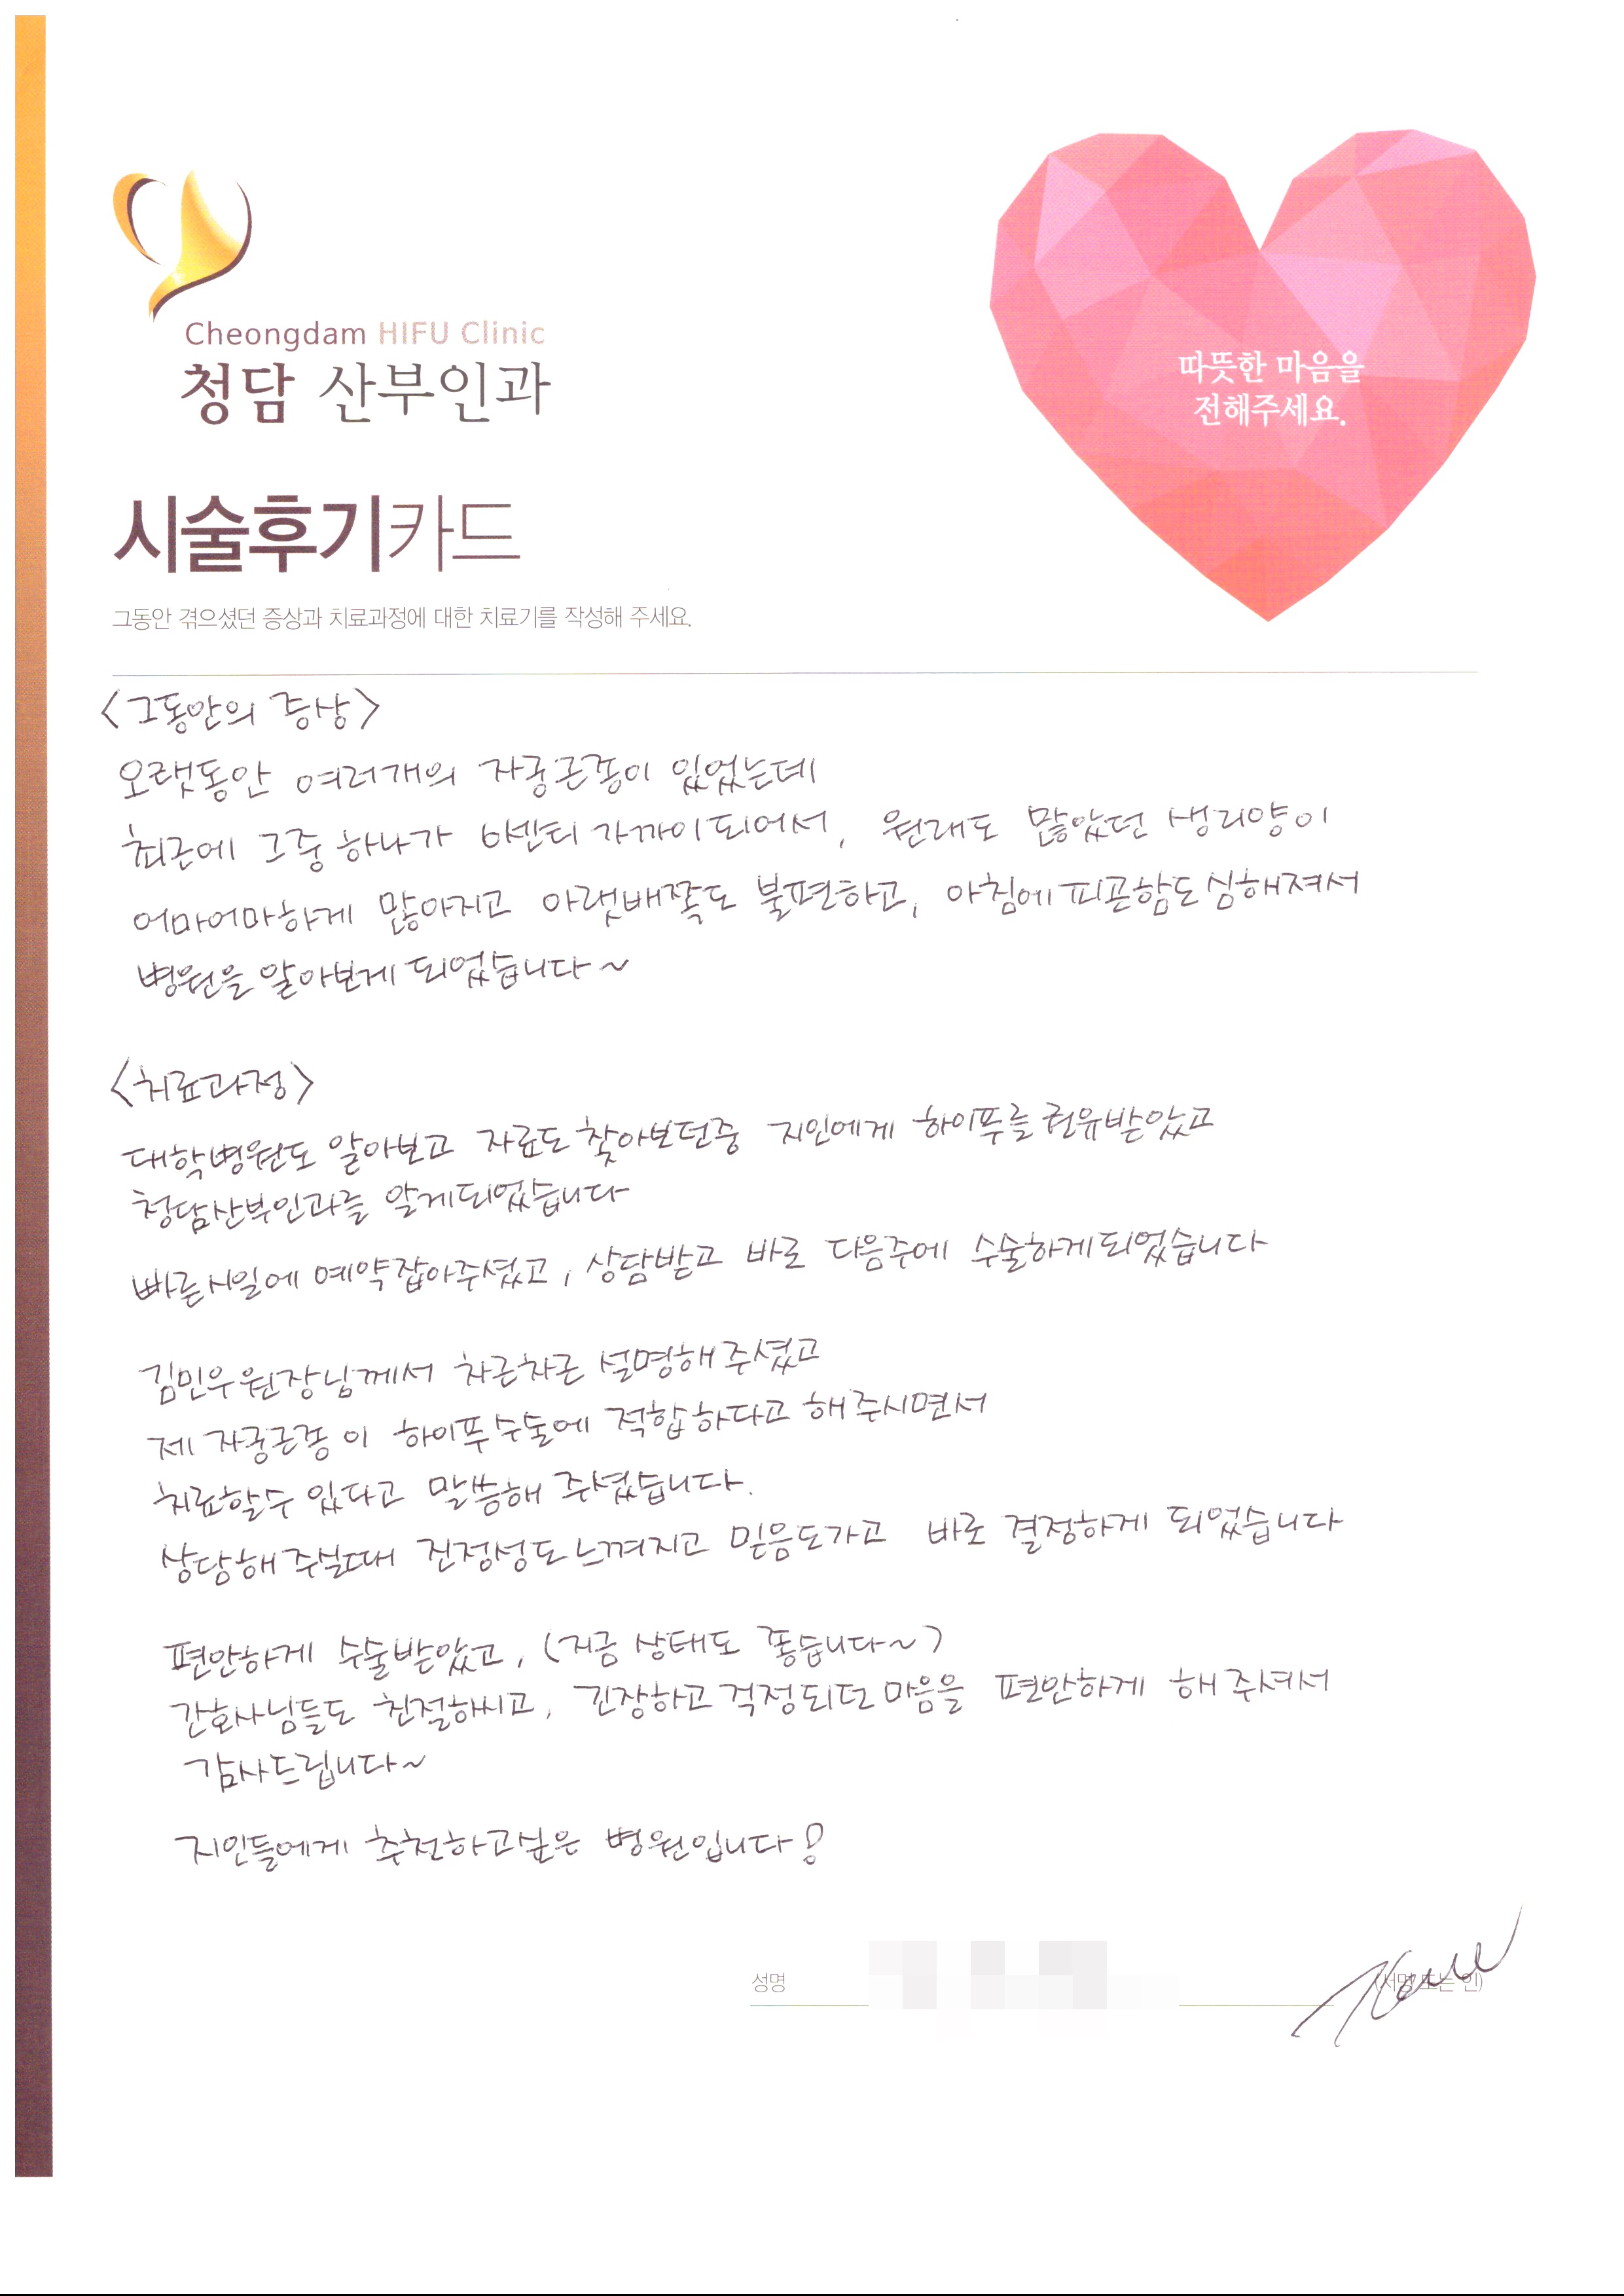 Cheongdam HIFU Clinic
청담 산부인과
따뜻한 마음을
전해주세요.
시술후기카드
그동안 겪으셨던 증상과 치료과정에 대한 치료기를 작성해 주세요.
<그동안의 증상>
오랫동안 여러개의 자궁근종이 있었는데
최근에 그중 하나가 6센티 가까이되어서, 원래도 많았던 생리양이
어마어마하게 많아지고 아랫배쪽도 불편하고, 아침에 피곤함도 심해져서
병원을 알아보게 되었습니다~
<치료과정>
대학병원도 알아보고 자료도 찾아보던중 지인에게 하이푸를 권유받았고
청담산부인과를 알게되었습니다
빠른시일에 예약잡아주셨고, 상담받고 바로 다음주에 수술하게되었습니다
김민우 원장님께서 차근차근 설명해 주셨고
제 자궁근종이 하이푸수술에 적합하다고 해주시면서
치료할수 있다고 말씀해 주셨습니다.
상담해 주실때 진정성도 느껴지고 믿음도가고 바로 결정하게 되었습니다
편안하게 수술받았고, (지금 상태도 좋습니다~)
간호사님들도 친절하시고, 긴장하고 걱정되던 마음을 편안하게 해주셔서
감사드립니다~
지인들에게 추천하고싶은 병원입니다!
성명
(서명 또는 인)